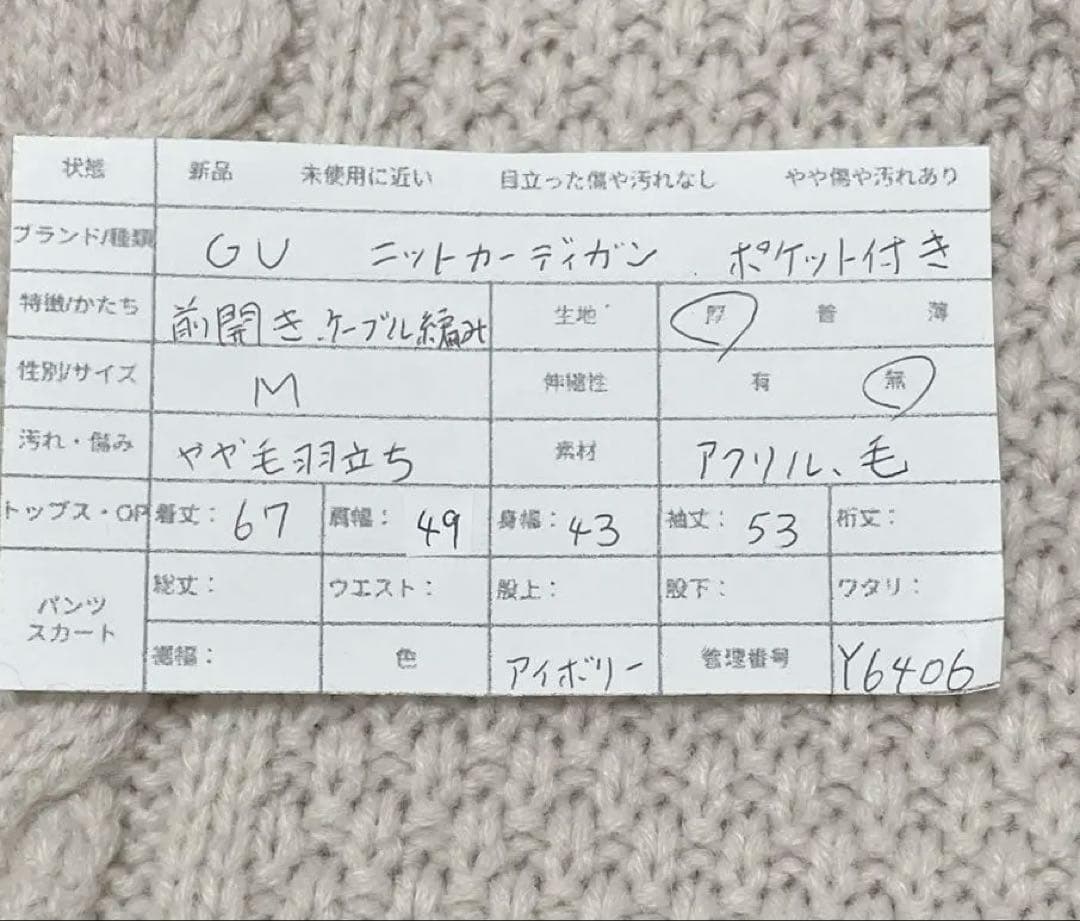 状態 新品 未使用に近い 目立った傷や汚れなし やや傷や汚れあり
ブランド/種類 GU ニットカーディガン ポケット付き
特徴/かたち 前開き、ケーブル編み 生地 厚 普 薄
性別/サイズ M 伸縮性 有 無
汚れ・傷み やや毛羽立ち 素材 アクリル、毛
トップス・OP 着丈: 67 肩幅: 49 身幅: 43 袖丈: 53 裄丈:
パンツ スカート 総丈: ウエスト: 股上: 股下: ワタリ:
裾幅: 色 アイボリー 管理番号 Y6406